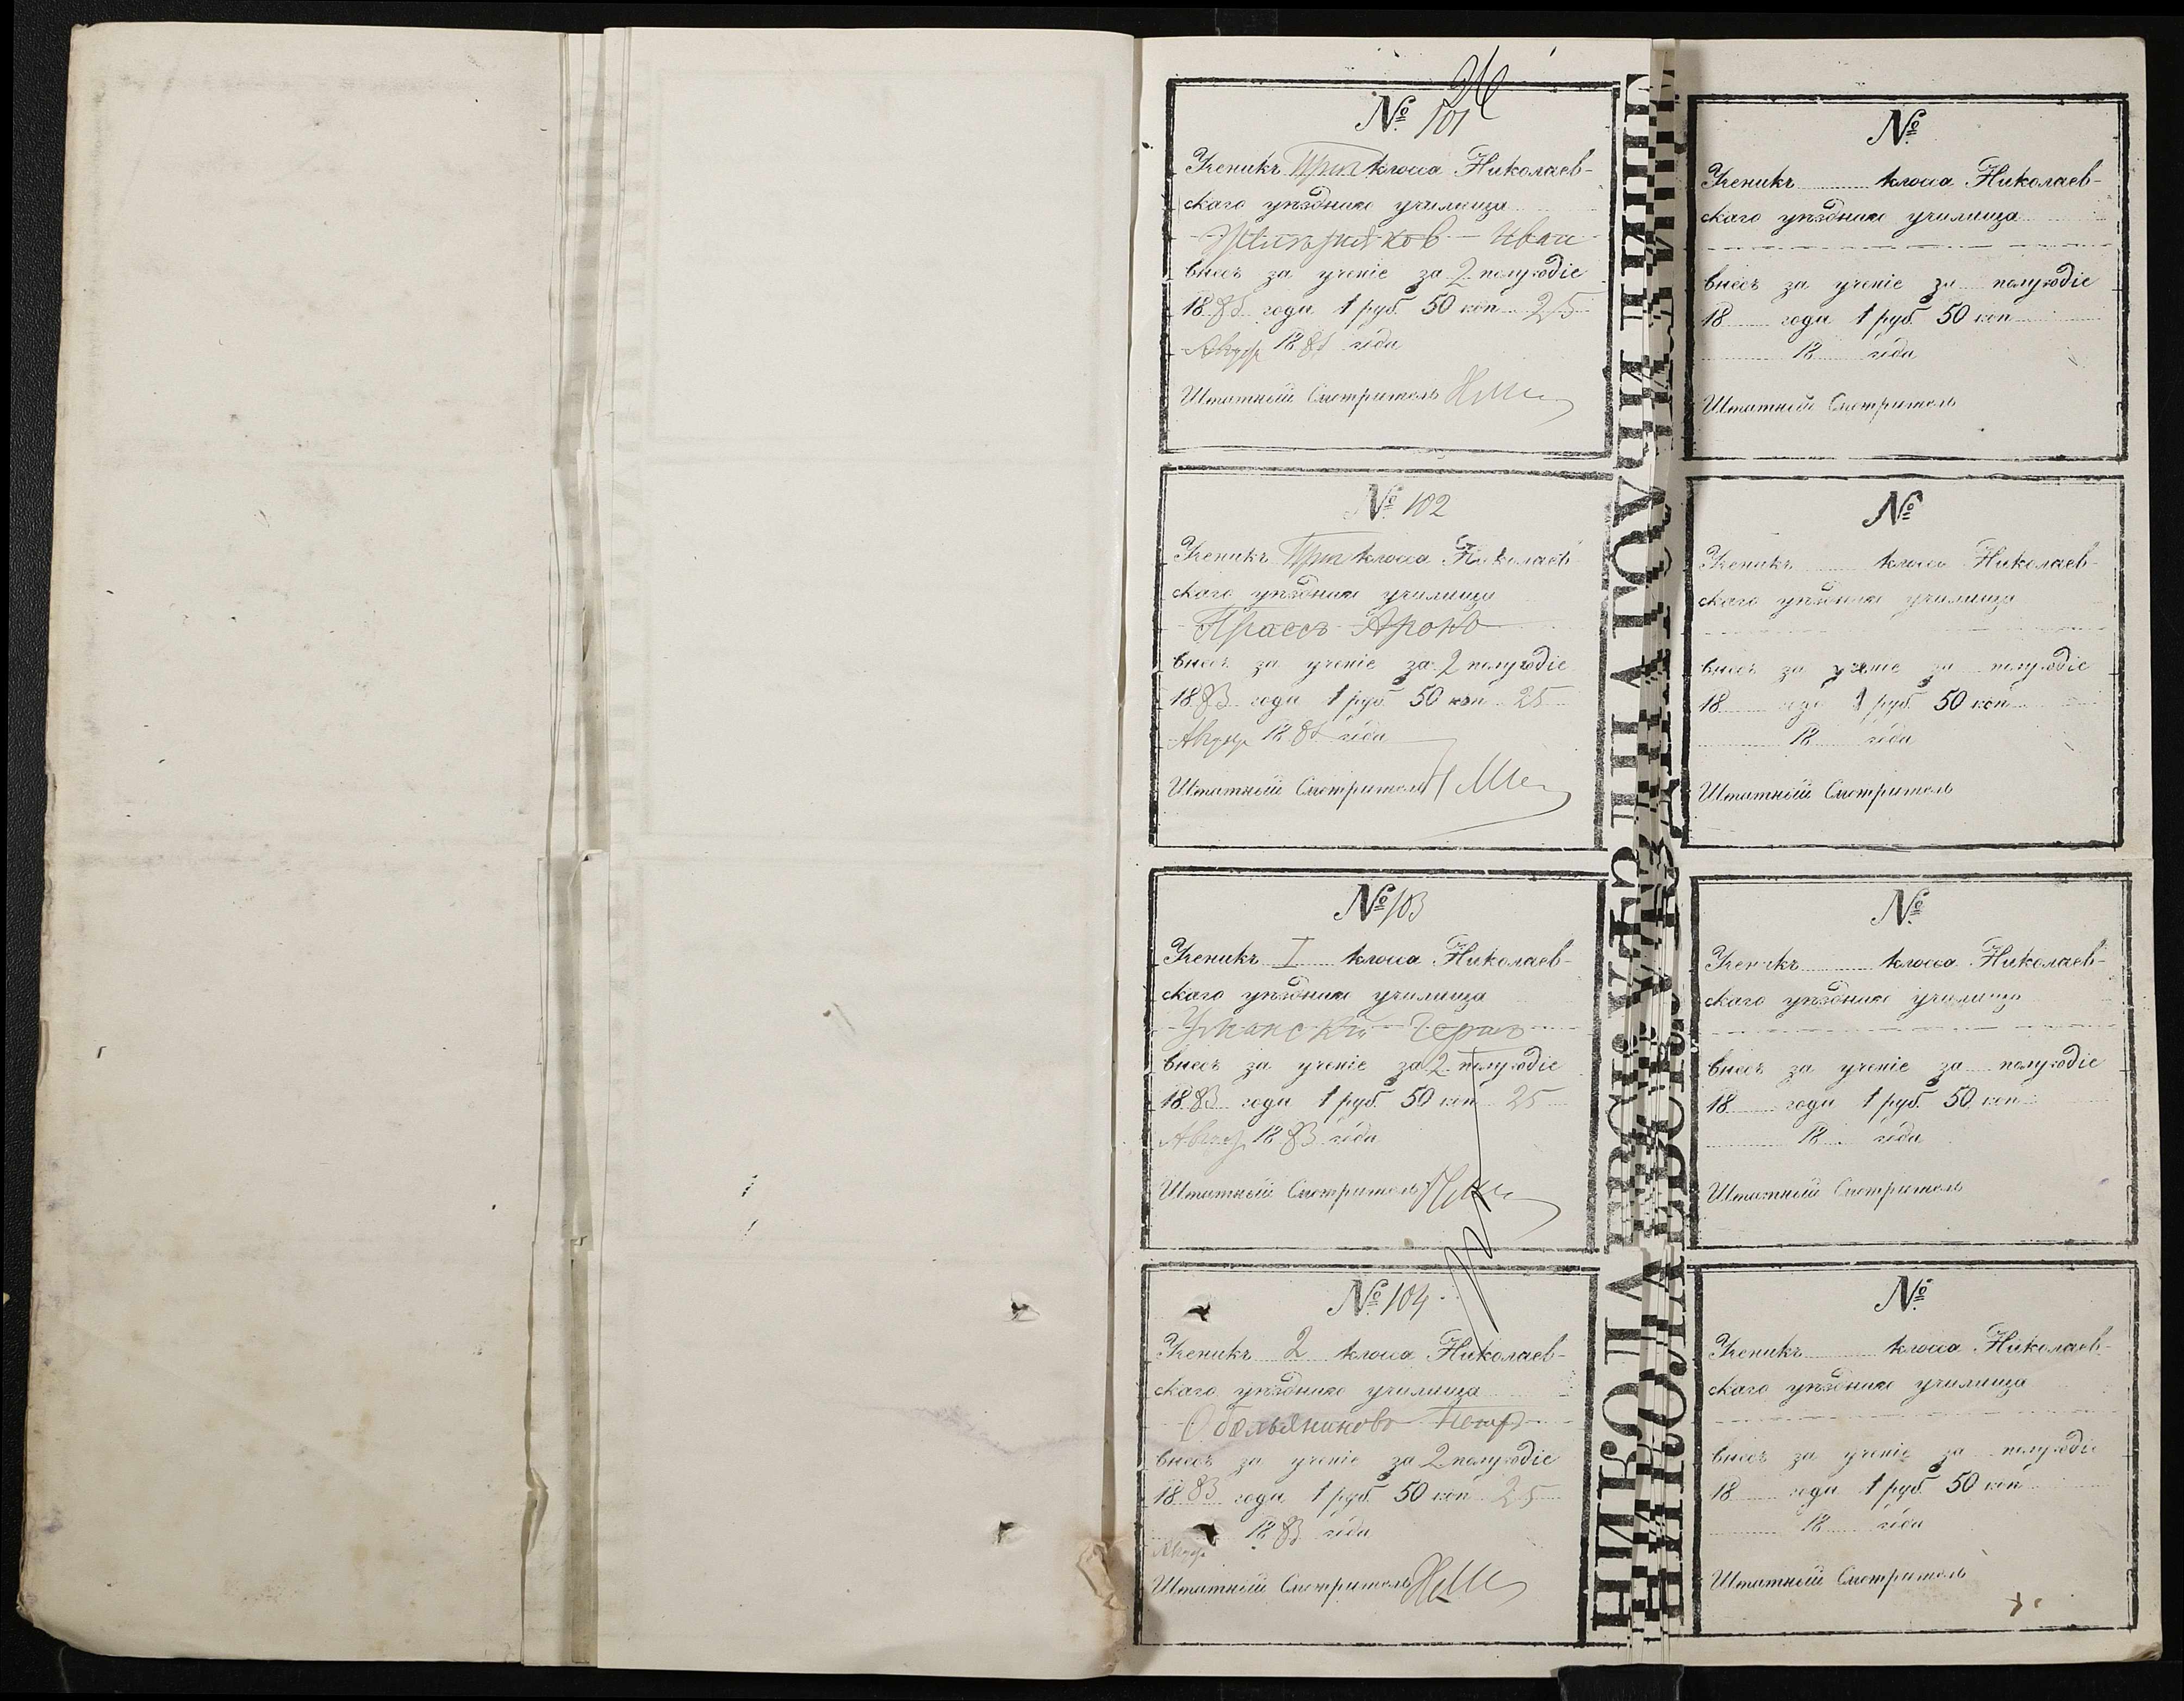 26
№ 101
Ученикъ При класса Николаев-
скаго уѣзднаго училища
Иван
внесъ за ученіе за 2 полугодіе
1883 года 1 руб. 50 коп 25
Август 1883 года
Штатный Смотритель
№ 102
Ученикъ При класса Николаев
скаго уѣзднаго училища
Аронъ
внесъ за ученіе за 2 полугодіе
1883 года 1 руб. 50 коп 25
Август 1883 года
Штатный Смотритель
№ 103
Ученикъ I класса Николаев-
скаго уѣзднаго училища
Уманскій
внесъ за ученіе за 2 полугодіе
1883 года 1 руб. 50 коп 25
Август 1883 года
Штатный Смотритель
№ 104
Ученикъ 2 класса Николаев-
скаго уѣзднаго училища
Обольяниновъ Петръ
внесъ за ученіе за 2 полугодіе
1883 года 1 руб. 50 коп 25
Август 1883 года
Штатный Смотритель
№
Ученикъ класса Николаев-
скаго уѣзднаго училища
внесъ за ученіе за полугодіе
18 года 1 руб. 50 коп
18 года
Штатный Смотритель
№
Ученикъ класса Николаев-
скаго уѣзднаго училища
внесъ за ученіе за полугодіе
18 года 1 руб. 50 коп
18 года
Штатный Смотритель
№
Ученикъ класса Николаев-
скаго уѣзднаго училища
внесъ за ученіе за полугодіе
18 года 1 руб. 50 коп
18 года
Штатный Смотритель
№
Ученикъ класса Николаев-
скаго уѣзднаго училища
внесъ за ученіе за полугодіе
18 года 1 руб. 50 коп
18 года
Штатный Смотритель